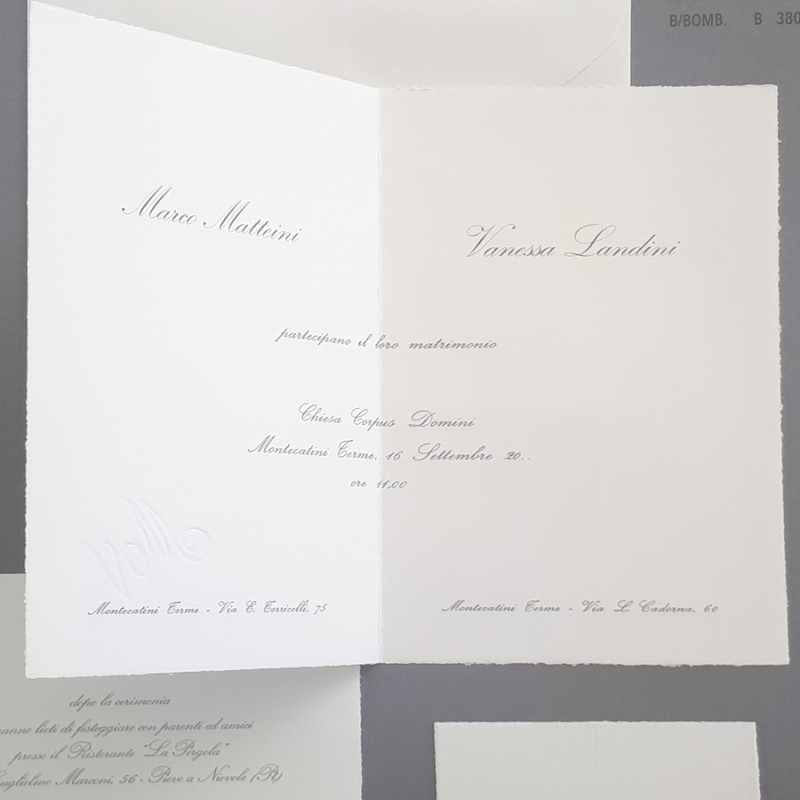 B/BOMB. B 380
Marco Matteini
Vanessa Landini
partecipano il loro matrimonio
Chiesa Corpus Domini
Montecatini Terme, 16 Settembre 20..
ore 11,00
Montecatini Terme - Via E. Torricelli, 75
Montecatini Terme - Via L. Cadorna, 60
dopo la cerimonia
anno lieti di festeggiare con parenti ed amici
presso il Ristorante "La Pergola"
uglielmo Marconi, 56 - Pieve a Nievole